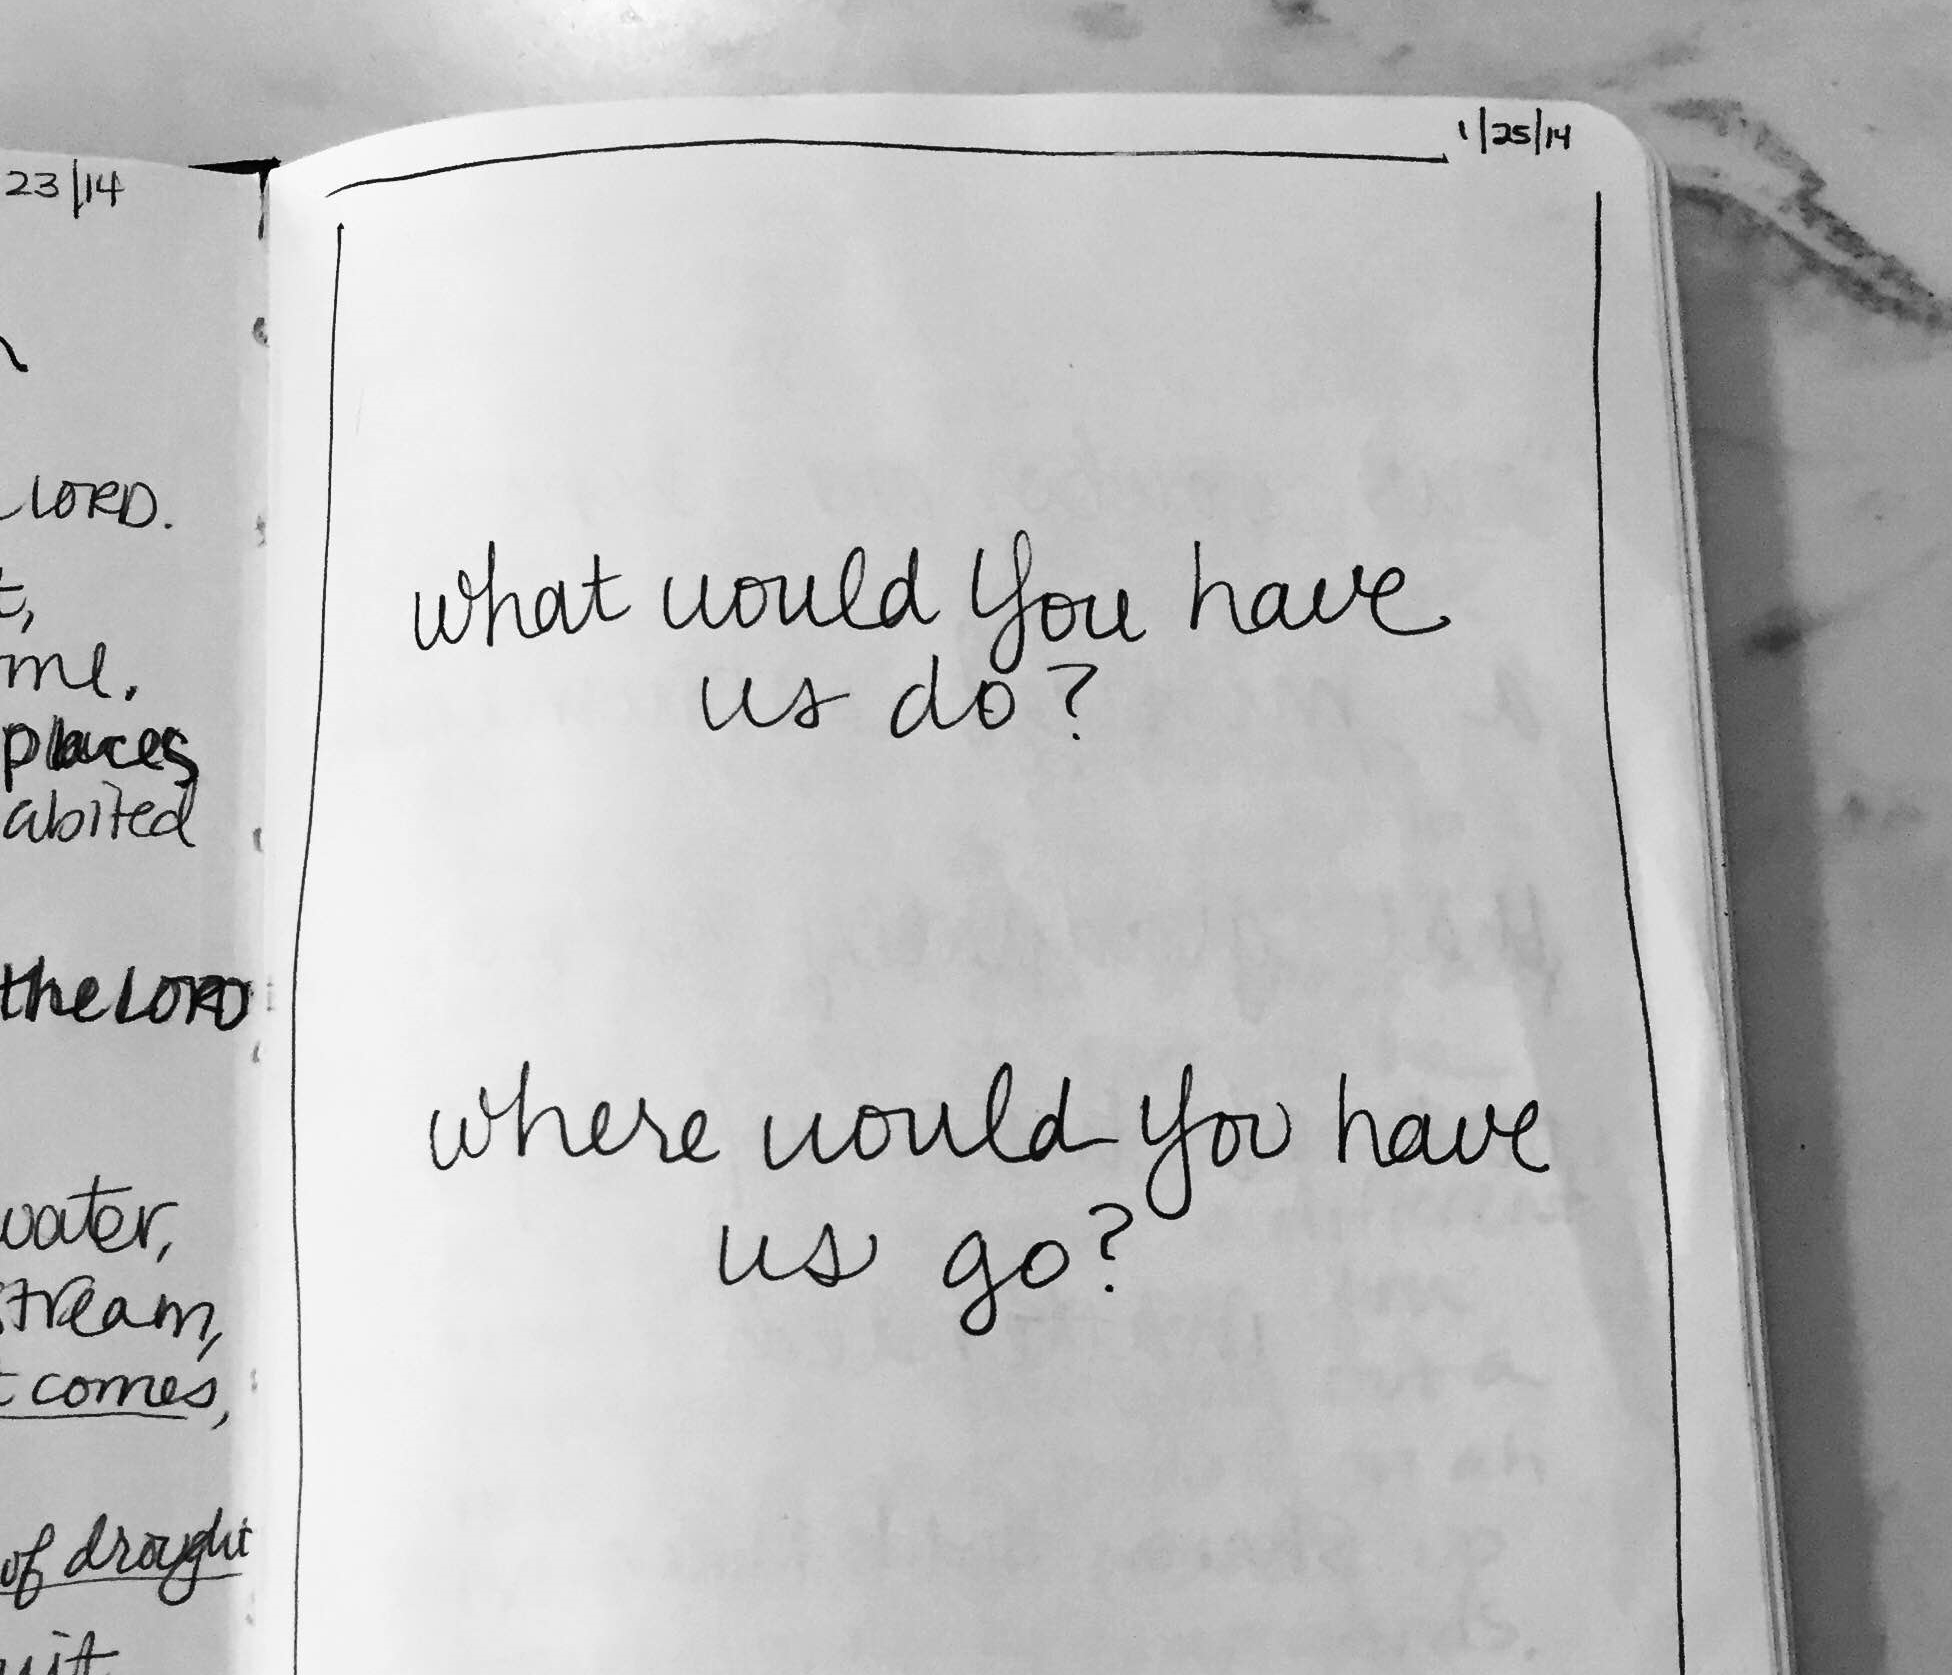 23/14
LORD.
me.
places
abited
the LORD
water,
stream,
comes,
of drought
1/25/14
what would You have
us do?
where would You have
us go?